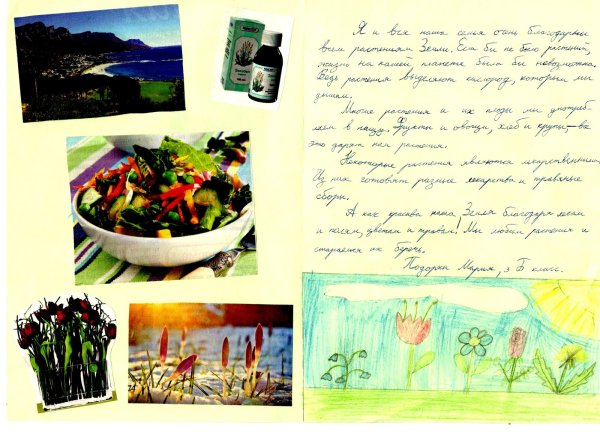 Я и вся наша семья очень благодарны
всем растениям Земли. Если бы не было растений,
жизнь на нашей планете была бы невозможна.
Ведь растения выделяют кислород, которым мы
дышим.
Многие растения и их плоды мы употреб-
ляем в пищу. Фрукты и овощи, хлеб и крупы – всё
это дарят нам растения.
Некоторые растения являются лекарственными.
Из них готовят разные лекарства и травяные
сборы.
А как красива наша Земля благодаря лесам
и полям, цветам и травам! Мы любим растения и
стараемся их беречь.
Мария, 3 Б класс.